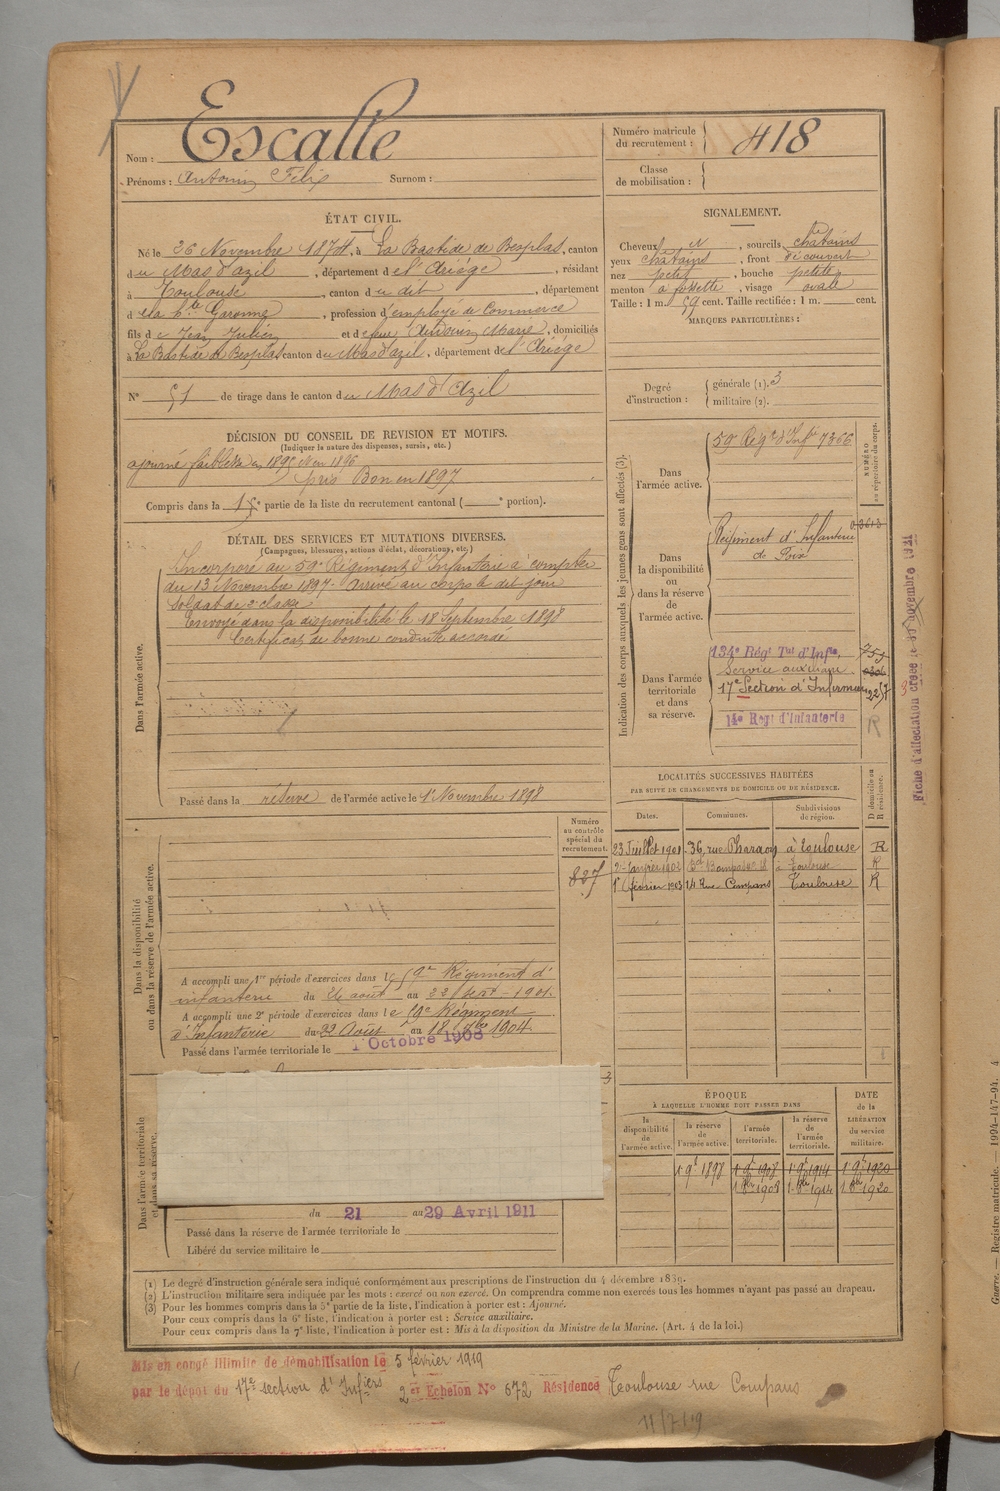 Nom : Escalle
Prénoms : Antonin Félix Surnom :
Numéro matricule du recrutement : 418
Classe de mobilisation :
ÉTAT CIVIL.
Né le 26 Novembre 1874, à La Bastide de Besplas, canton
du Mas d'azil, département de l'Ariége, résidant
à Toulouse, canton du dit, département
de la Hte Garonne, profession d'employé de Commerce
fils de Jean Julien et de feue Audouin Marie, domiciliés
à La Bastide de Besplas canton du Mas d'azil, département de l'Ariége
N° 51 de tirage dans le canton du Mas d'Azil
DÉCISION DU CONSEIL DE REVISION ET MOTIFS.
(Indiquer la nature des dispenses, sursis, etc.)
ajourné faiblesse en 1895 et en 1896
pris Bon en 1897
Compris dans la 1 5e partie de la liste du recrutement cantonal ( e portion).
DÉTAIL DES SERVICES ET MUTATIONS DIVERSES.
(Campagnes, blessures, actions d'éclat, décorations, etc.)
Dans l'armée active.
Incorporé au 59e Régiment d'Infanterie à compter
du 13 Novembre 1897. Arrivé au corps le dit jour
Soldat de 2e classe
Envoyé dans la disponibilité le 18 Septembre 1898
Certificat de bonne conduite accordé
Passé dans la réserve de l'armée active le 1er Novembre 1898
Dans la disponibilité
ou dans la réserve de l'armée active.
Numéro
au contrôle
spécial du
recrutement.
827
A accompli une 1re période d'exercices dans le 59e Régiment d'
infanterie du 26 août au 22 sept. 1901.
A accompli une 2e période d'exercices dans le 59e Régiment
d'Infanterie du 22 Août au 18 7bre 1904.
Passé dans l'armée territoriale le 1 Octobre 1908
3
Dans l'armée territoriale
et dans sa réserve.
du 21 au 29 Avril 1911
Passé dans la réserve de l'armée territoriale le
Libéré du service militaire le
SIGNALEMENT.
Cheveux et, sourcils châtains
yeux châtains, front découvert
nez petit, bouche petite
menton à fossette, visage ovale
Taille : 1 m. 59 cent. Taille rectifiée : 1 m. cent.
MARQUES PARTICULIÈRES :
Degré d'instruction :
générale (1). 3
militaire (2).
Indication des corps auxquels les jeunes gens sont affectés (3).
NUMÉRO
au répertoire du corps.
Dans
l'armée active.
59e Régt d'Infie 7366
Dans
la disponibilité
ou
dans la réserve
de
l'armée active.
Régiment d'Infanterie
de Foix
Dans l'armée
territoriale
et dans
sa réserve.
134e Régt Tal d'Infie.
Service auxiliaire
17e Section d'Infirmiers
14e Régt d'Infanterie
R
Fiche d'affectation créée le novembre 1931
LOCALITÉS SUCCESSIVES HABITÉES
PAR SUITE DE CHANGEMENTS DE DOMICILE OU DE RÉSIDENCE.
Dates. Communes. Subdivisions de région. D domicile ou R résidence.
23 Juillet 1901 36, rue Pharaon à Toulouse R
janvier 1902 à Toulouse R
1er février 1903 14 Rue Compans Toulouse R
ÉPOQUE
À LAQUELLE L'HOMME DOIT PASSER DANS
DATE
de la
LIBÉRATION
du service
militaire.
la disponibilité de l'armée active.
la réserve de l'armée active.
l'armée territoriale.
la réserve de l'armée territoriale.
1 9e 1898 1 9e 1908 1 9e 1914 1 9e 1920
1 8bre 1908 1 8bre 1914 1 8bre 1920
(1) Le degré d'instruction générale sera indiqué conformément aux prescriptions de l'instruction du 4 décembre 1889.
(2) L'instruction militaire sera indiquée par les mots : exercé ou non exercé. On comprendra comme non exercés tous les hommes n'ayant pas passé au drapeau.
(3) Pour les hommes compris dans la 5e partie de la liste, l'indication à porter est : Ajourné.
Pour ceux compris dans la 6e liste, l'indication à porter est : Service auxiliaire.
Pour ceux compris dans la 7e liste, l'indication à porter est : Mis à la disposition du Ministre de la Marine. (Art. 4 de la loi.)
Mis en congé illimité de démobilisation le 5 février 1919
par le dépôt du 17e section d'Infiers 2e Echelon N° 672 Résidence Toulouse rue Compans
11/7/19
Guerre. — Registre matricule. — 1994-147-94. 4